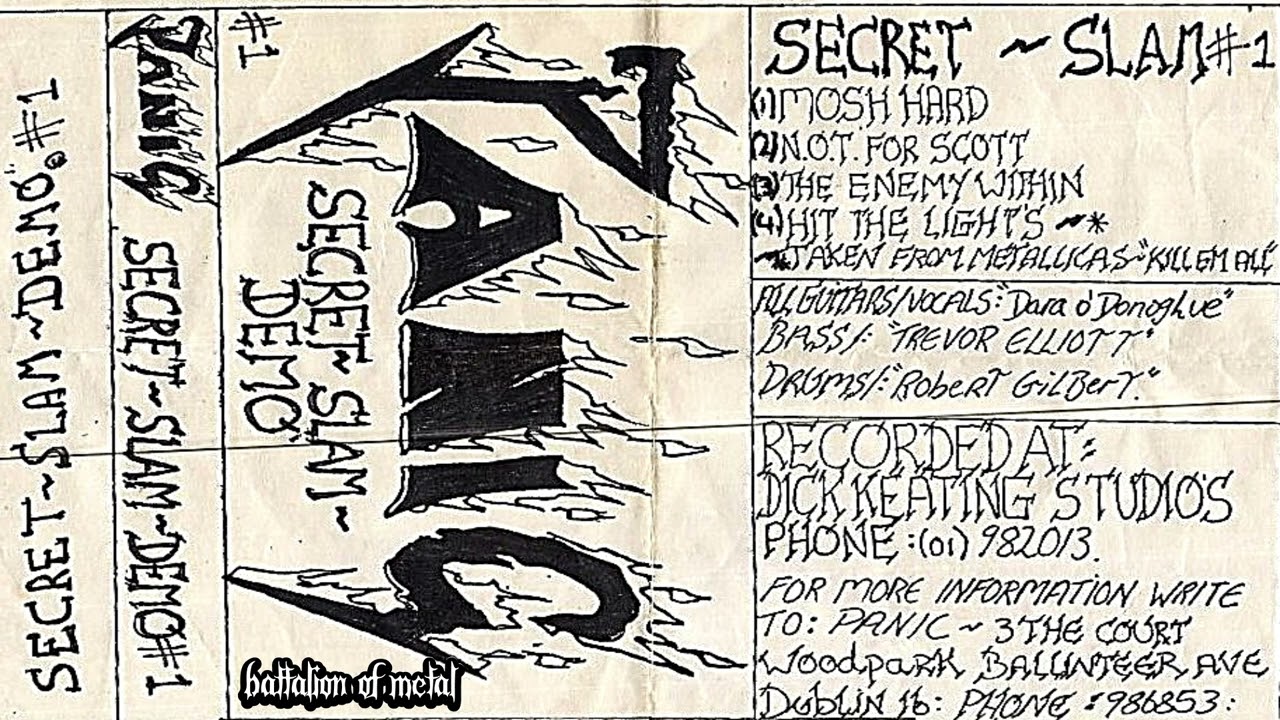 SECRET ~ SLAM ~ DEMO. #1
PANIC
SECRET ~ SLAM ~ DEMO #1
#1
PANIC
SECRET ~ SLAM ~
DEMO
battalion of metal
SECRET ~ SLAM #1
(1) MOSH HARD
(2) N.O.T. FOR SCOTT
(3) THE ENEMY WITHIN
(4) HIT THE LIGHT'S ~*
~* TAKEN FROM METALLICAS ~ "KILL EM ALL"
ALL GUITARS/VOCALS: "Dara o'Donoghue"
BASS/: "TREVOR ELLIOTT"
DRUMS/: "Robert GilBerT."
RECORDED AT:
DICK KEATING STUDIO'S
PHONE: (01) 982013.
FOR MORE INFORMATION WRITE
TO: PANIC ~ 3 THE COURT
Woodpark BALLINTEER AVE
Dublin 16: PHONE: 986853: